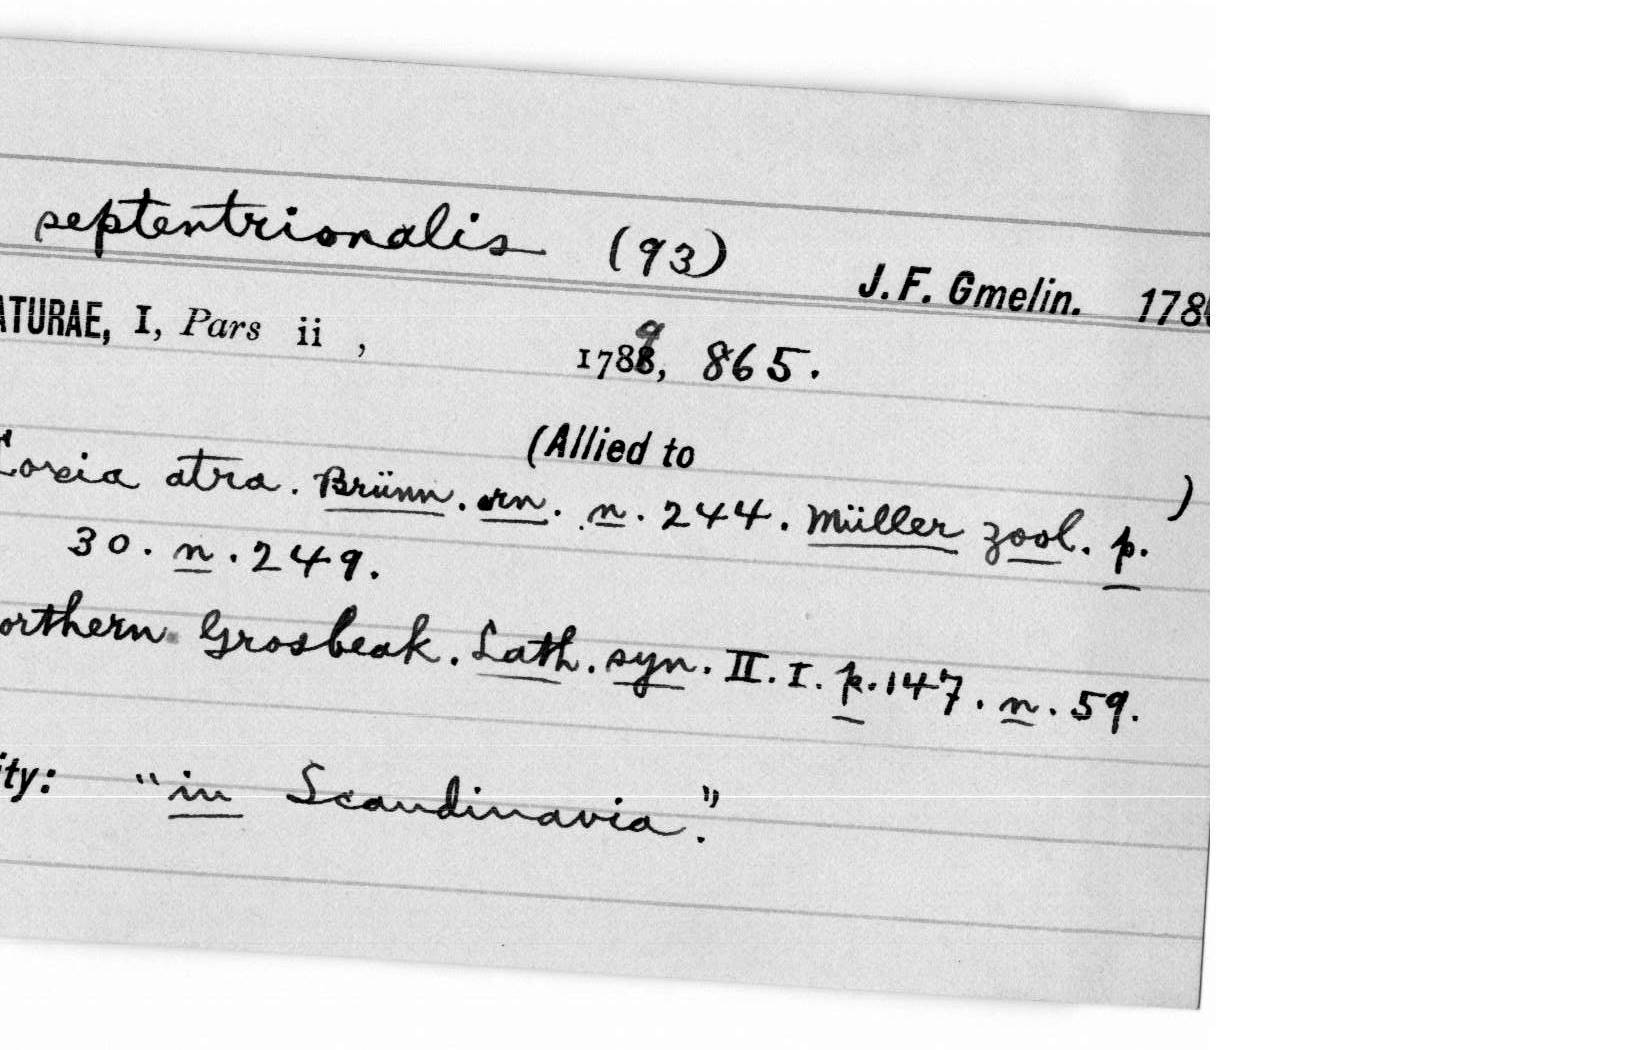 septentrionalis (93)
J.F. Gmelin. 178
ATURAE, I, Pars ii , 1789, 865.
(Allied to )
Loxia atra. Brünn. orn. n. 244. Müller zool. p.
30. n. 249.
orthern Grosbeak. Lath. syn. II. I. p. 147. n. 59.
ity: "in Scandinavia".